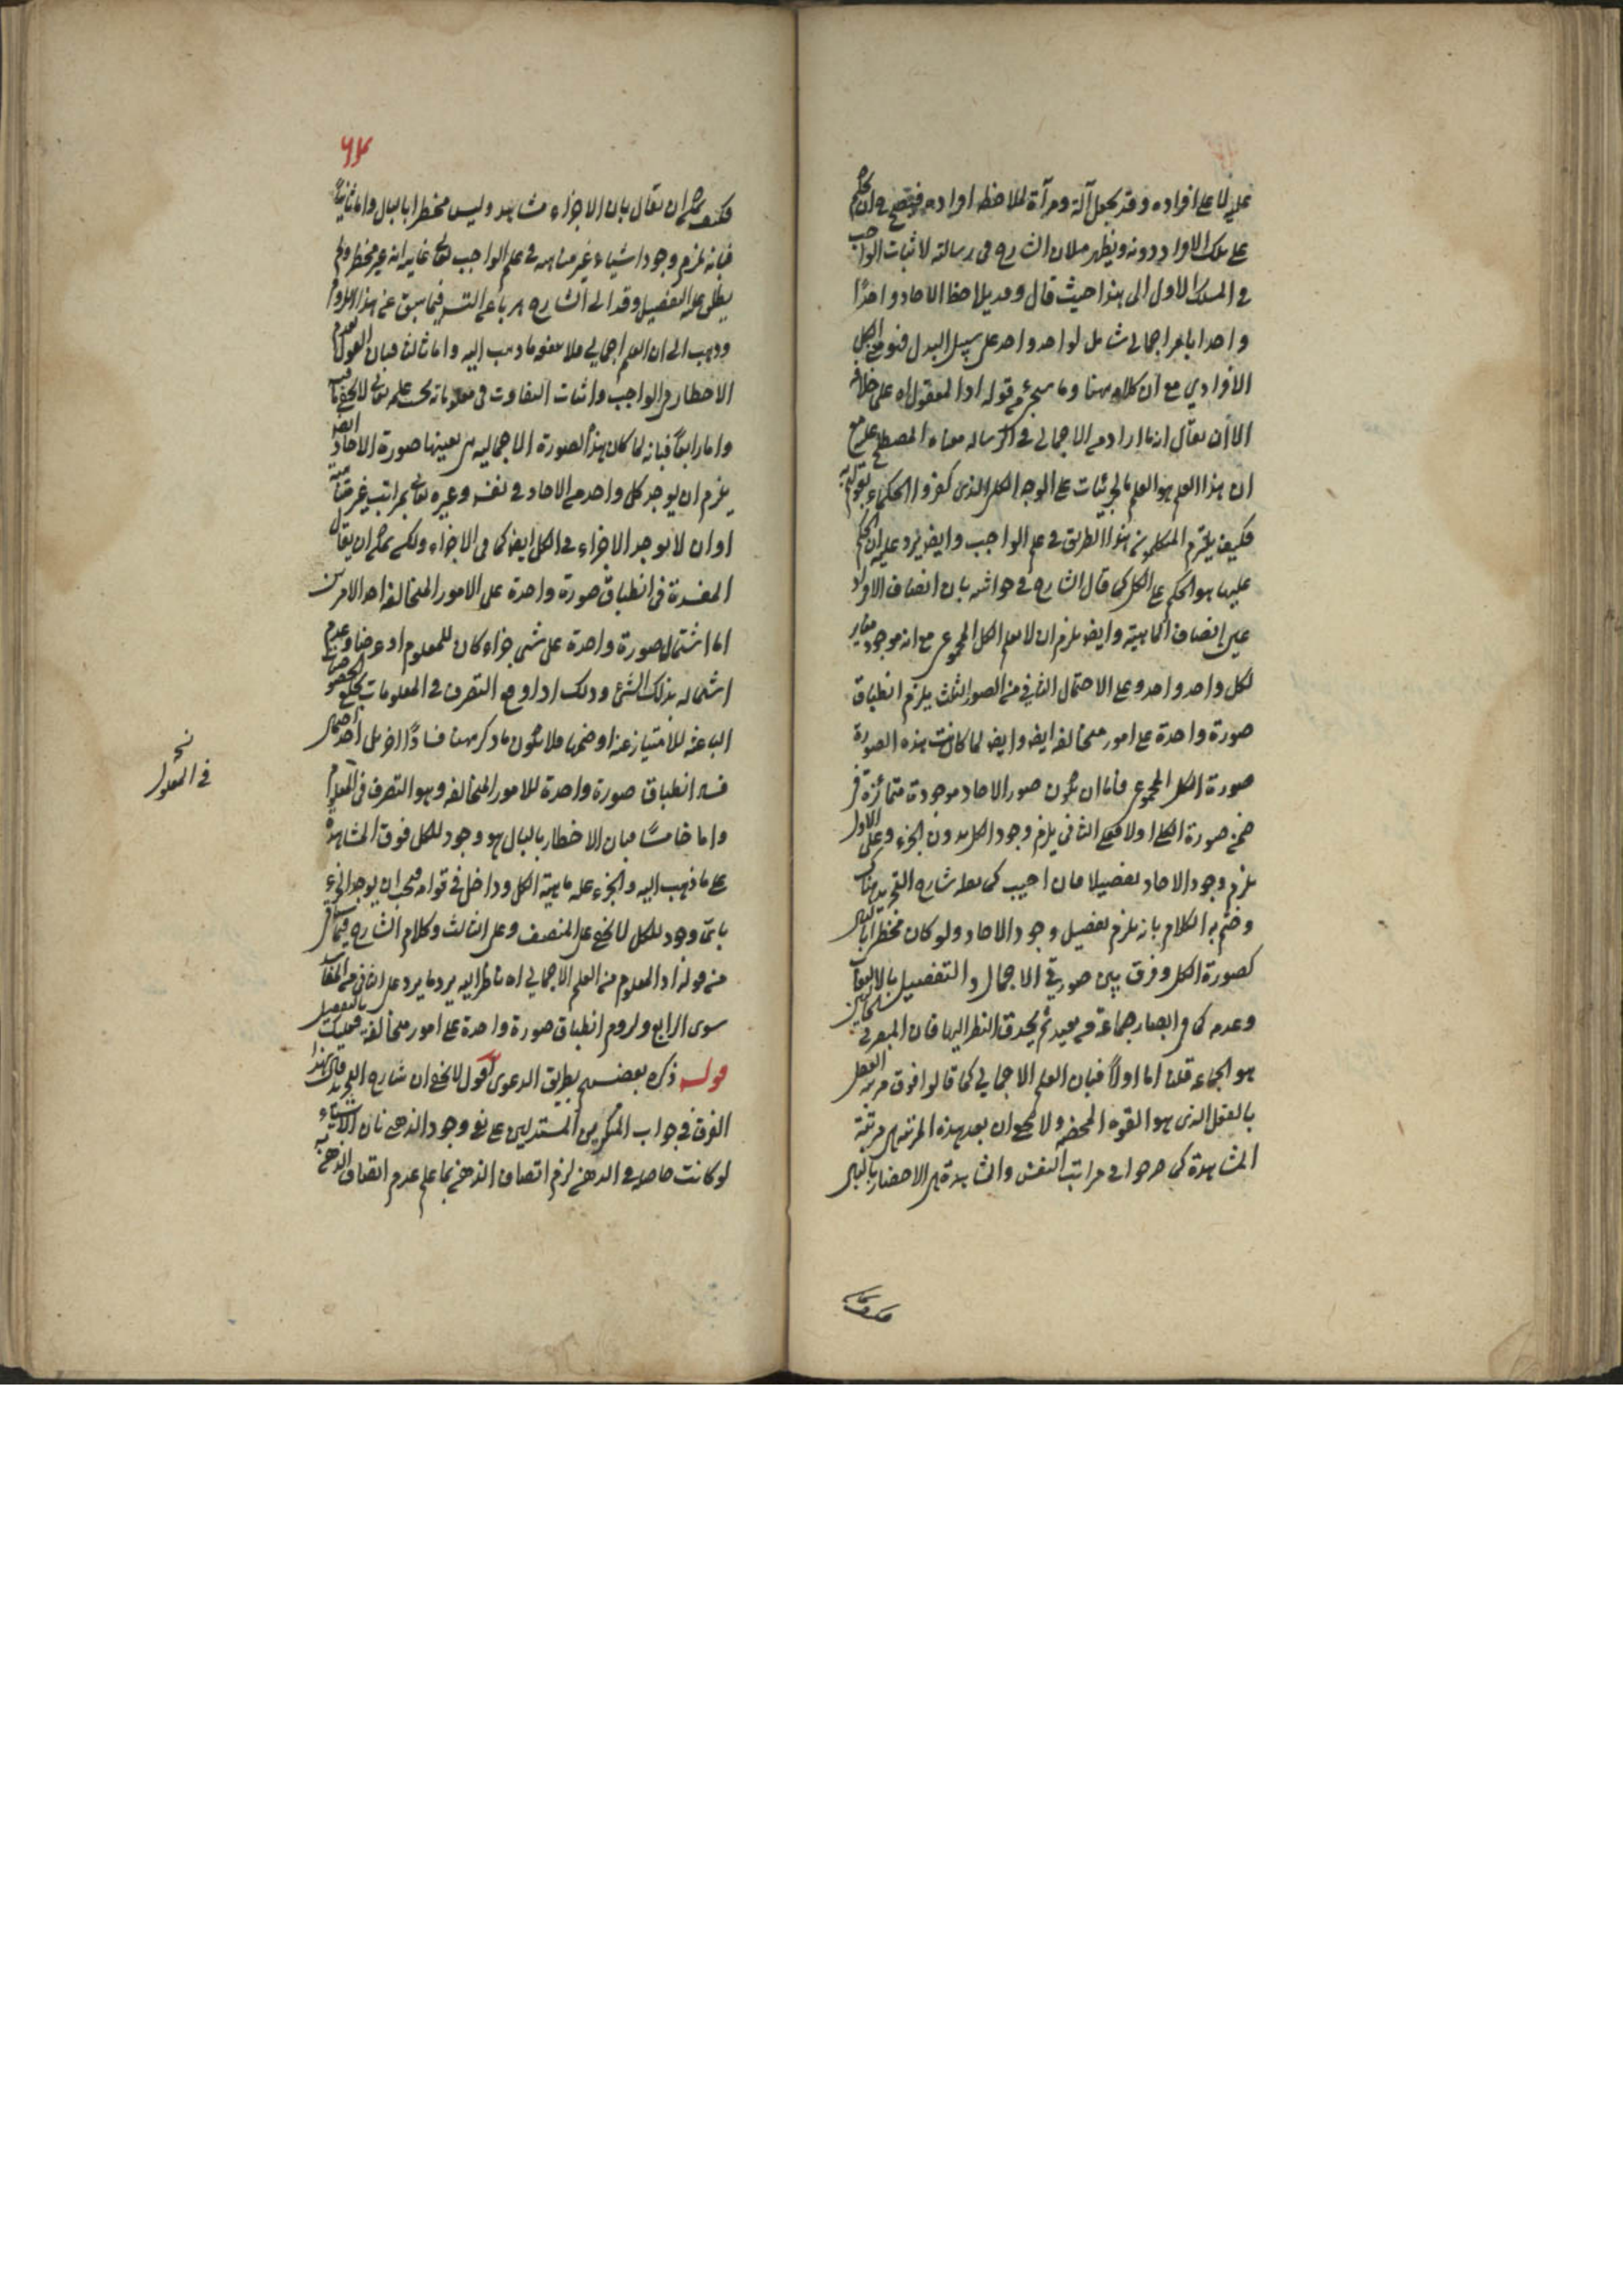 عليه لا على افراده وقد يجعل آلة ومرآة لملاحظة افراده فيصح ان يحكم
على تلك الافراد دونه ويظهر ميلان الشارح في رسالته لاثبات الواجب
في المسلك الاول الى هذا حيث قال وقد يلاحظ الآحاد واحدًا
واحدا بامر اجمالي شامل لواحد واحد على سبيل البدل فهو الكل
الافرادي مع ان كلامه هنا وما سيجئ من قوله اذا المعقول اه على خلافه
الا ان يقال انما اراد من الاجمالي في الرسالة معناه المصطلح عليه مع
ان هذا العلم هو العلم بالجزئيات على الوجه الكلي الذي كفروا الحكماء بقولهم به
فكيف يلتزم المتكلمين هذا الطريق في علم الواجب وايضا يرد عليه ان الحكم
عليها هو الحكم على الكل كما قال الشارح في حواشيه بان اتصاف الافراد
عين اتصاف الماهية وايضا يلزم ان لا يعلم الكل المجموعي مع انه موجود مغاير
لكل واحد واحد وعلى الاحتمال الثاني من الصور الثلث يلزم انطباق
صورة واحدة على امور متخالفة ايضا وايضا لما كانت هذه الصورة
صورة الكل المجموعي فاما ان يكون صور الآحاد موجودة متمائزة في
ضمن صورة الكل او لا فعلى الثاني يلزم وجود الكل بدون الجزء وعلى الاول
يلزم وجود الآحاد تفصيلا فان اجيب كما نقله شارح التجريد هناك
وختم به الكلام بانه يلزم تفصيل وجود الآحاد ولو كان مخطرا بالبال
كصورة الكل وفرق بين صورتي الاجمال والتفصيل بالالتفات
وعدمه كما في ابصار جماعة من بعيد ثم يحدق النظر اليها فان المبصر في الحالين
هو الجماعة قلنا اما اولاً فبان العلم الاجمالي كما قالوا فوق مرتبة العقل
بالعقل الذي هو القوة المحضة ولا يصح ان يعد هذه المرتبة هي مرتبة
المشاهدة كما صرحوا في مراتب النفس والمشاهدة هي الاحضار بالبال
فكيف يمكن
٦٣
فكيف يمكن ان يقال بان الاجزاء مشاهد وليس مخطرا بالبال واما ثانياً
فبانه يلزم وجود اشياء غير متناهية في علم الواجب تعالى غايته انه غير مخطر ولم
يطلق عليه التفصيل وقد ابى الشارح هربا عن التسلسل فيما سبق عن هذا اللزوم
وذهب الى ان العلم اجمالي فلا ينفعه ما ذهب اليه واما ثالثا فبان القول بعدم
الاخطار في الواجب واثبات التفاوت في معلوماته بحسب علمه تعالى لا يخفى ما فيه
واما رابعاً فبانه لما كان هذه الصورة الاجمالية هي بعينها صورة الآحاد ايضا
يلزم ان يوجد كل واحد من الآحاد في نفسه وغيره بمراتب غير متناهية
او ان لا يوجد الاجزاء في الكل ايضا كما في الاجزاء ولكن يمكن ان يقال
المفسدة في انطباق صورة واحدة على الامور المتخالفة احد الامرين
اما اشتمال صورة واحدة على شئ جزاء كان للمعلوم او عرضا وعدم
اشتماله بذلك الشئ وذلك اذا وقع التصرف في المعلومات بخلع الخصوصيات
الباعثة للامتياز عنه او ضمها فلا يكون ما ذكر هنا فسادًا آخر بل احتمال
فيه انطباق صورة واحدة للامور المتخالفة وهو التصرف في المعلوم
واما خامسًا فبان الاخطار بالبال هو وجود للكل فوق المشاهدة
على ما ذهب اليه والجزء علة ماهية الكل وداخل في قوامه فيجب ان يوجد الجزء
باي وجود للكل لما يخفى على المنصف وعلى الثالث وكلام الشارح فيما نقل
من قوله اذ المعلوم من العلم الاجمالي اه ناظر اليه يرد ما يرد على الثاني من المفاسد
سوى الرابع ولزوم انطباق صورة واحدة على امور متخالفة فعليك بالتفصيل
قوله ذكره بعضهم بطريق الدعوى اقول لا يخفى ان شارح التجريد قال هذا
الفرق في جواب المنكرين المستدلين على نفي وجود الذهني بان الاشياء
لو كانت حاصلة في الذهن لزم اتصاف الذهن بها على عدم اتصاف الذهن به
في المعلول